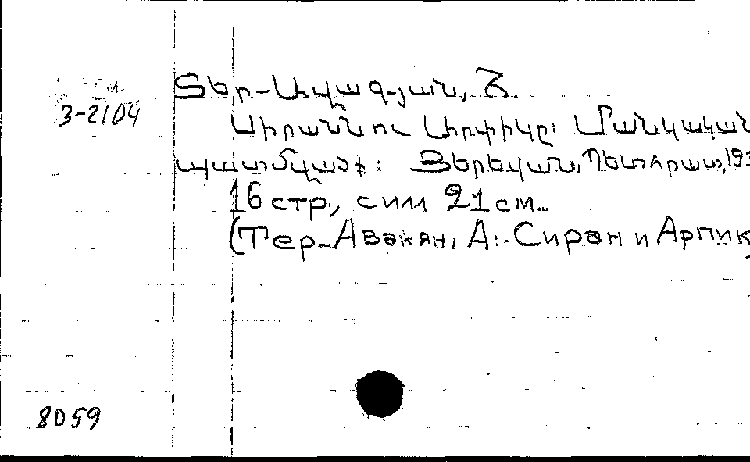 Տեր-Ավագյան, Հ.
3-2104
Սիրանն ու Արփիկը: Մանկական
պատմվածք: Յերեվան, Պետհրատ, 193
16 стр., с илл 21 см.
(Тер-Авакян, А.. Сиран и Арпик
8059